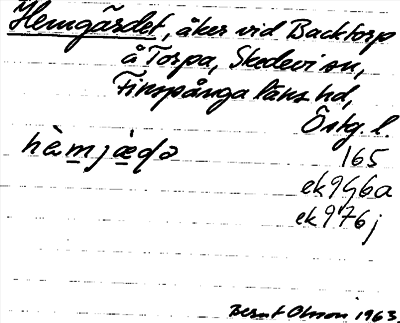 Hemgärdet, åker vid Backtorp
å Torpa, Skedevi sn,
Finspånga läns hd,
Östg. l.
hèmjæḍə 165
ek 946a
ek 976j
Bernt Olsson 1963.